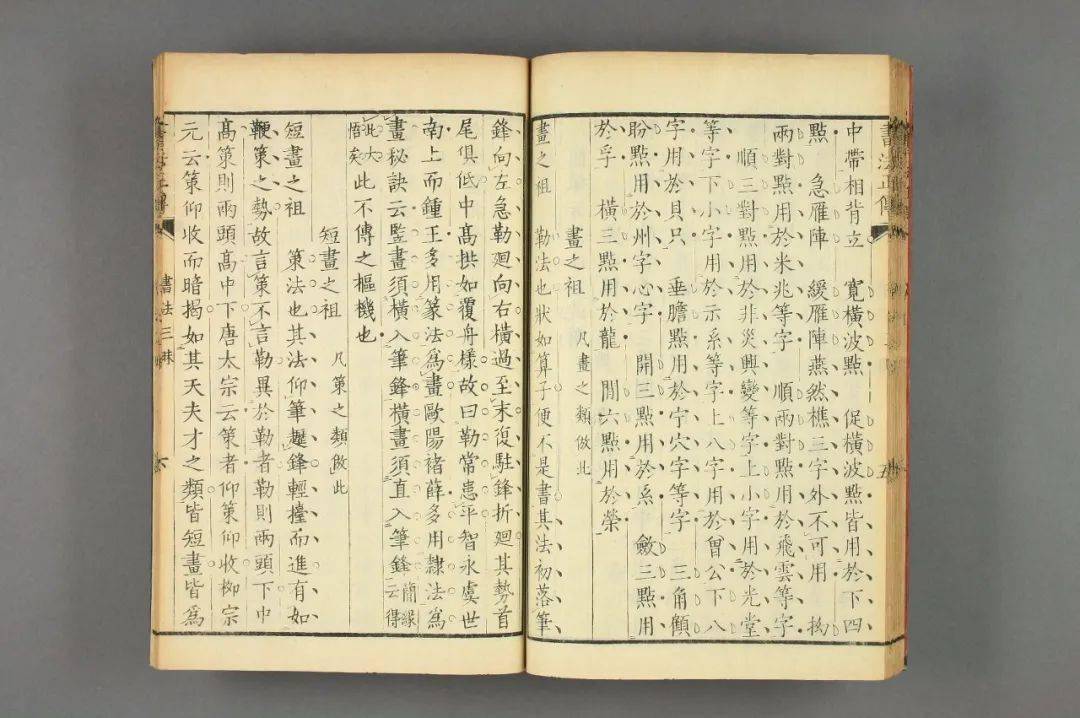 書法正傳
中帶相背立 寬橫波點 促橫波點皆用於下四
點 急雁陣 緩雁陣燕然樵三字外不可用 拘
兩對點用於米兆等字 順兩對點用於飛雲等字
順三對點用於非災興變等字上小字用於光堂
等字下小字用於示系等字上八字用於曾公下八
字用於貝只 垂膽點用於宁穴字等字 三角顧
盼點用於州字心字 開三點用於系 斂三點用
於孚 橫三點用於龍 開六點用於榮
畫之祖 凡畫之類倣此
勒法也狀如算子便不是書其法初落筆
鋒向左急勒廻向右橫過至末復駐鋒折廻其勢首
尾俱低中高拱如覆舟樣故曰勒常患平智永虞世
南上而鍾王多用篆法為畫歐陽褚薛多用隸法為
畫秘訣云豎畫須橫入筆鋒橫畫須直入筆鋒簡緣云得
此大悟矣此不傳之樞機也
短畫之祖 凡策之類倣此
短畫之祖 策法也其法仰筆趯鋒輕擡而進有如
鞭策之勢故言策不言勒異於勒者勒則兩頭下中
高策則兩頭高中下唐太宗云策者仰策仰收柳宗
元云策仰收而暗揭如其天夫才之類皆短畫皆為
書法三昧
六